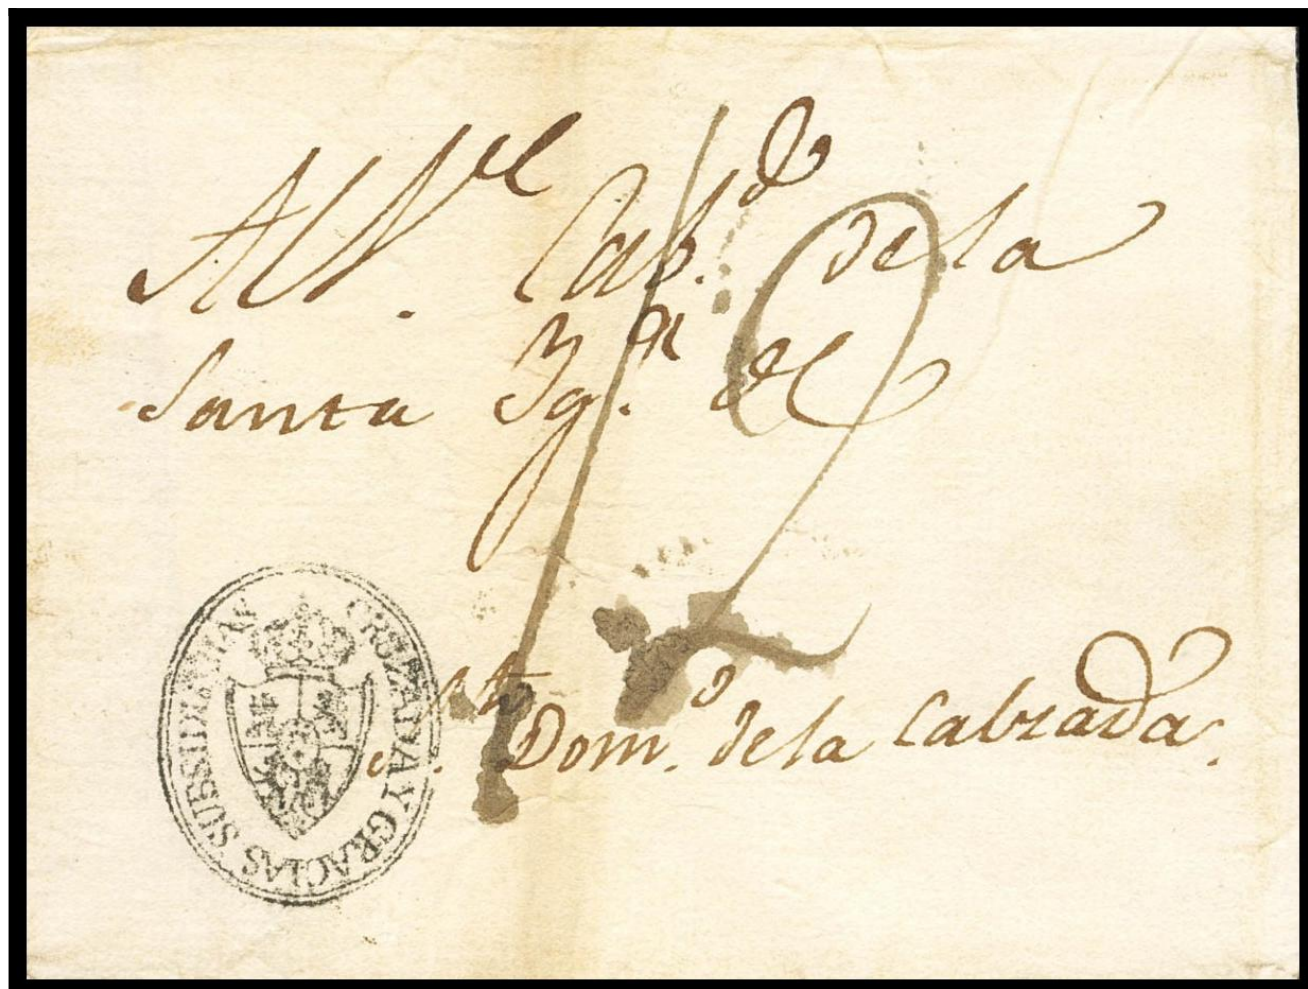 Al V.el Cab.do de la
Santa Yg.a del
S.to Dom.o de la Calzada.
12
CRUZADA Y GRACIAS SUBSIDIARIAS